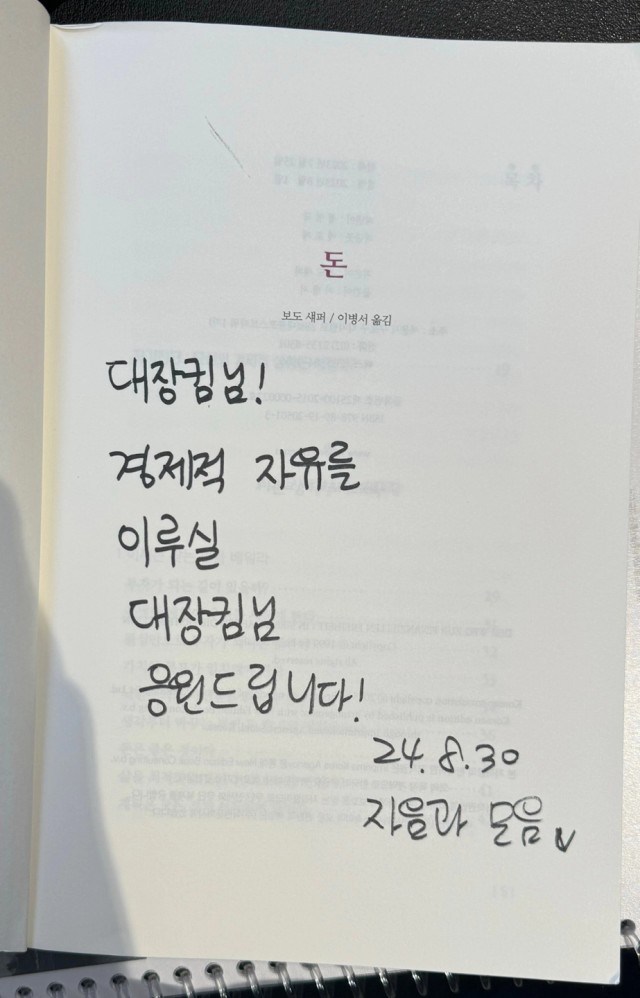 돈
보도 섀퍼 / 이병서 옮김
대장킴님!
경제적 자유를
이루실
대장킴님
응원드립니다!
24.8.30
자음과 모음